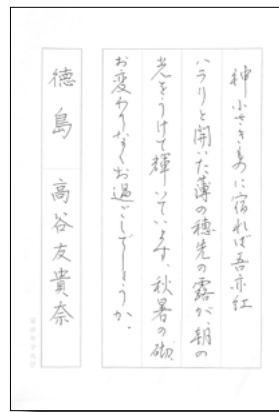 神小さきものに宿れば吾亦紅
ハラリと開いた薄の穂先の露が、朝の
光をうけて輝いています。秋暑の砌、
お変わりなくお過ごしでしょうか。
徳島　高谷友貴奈